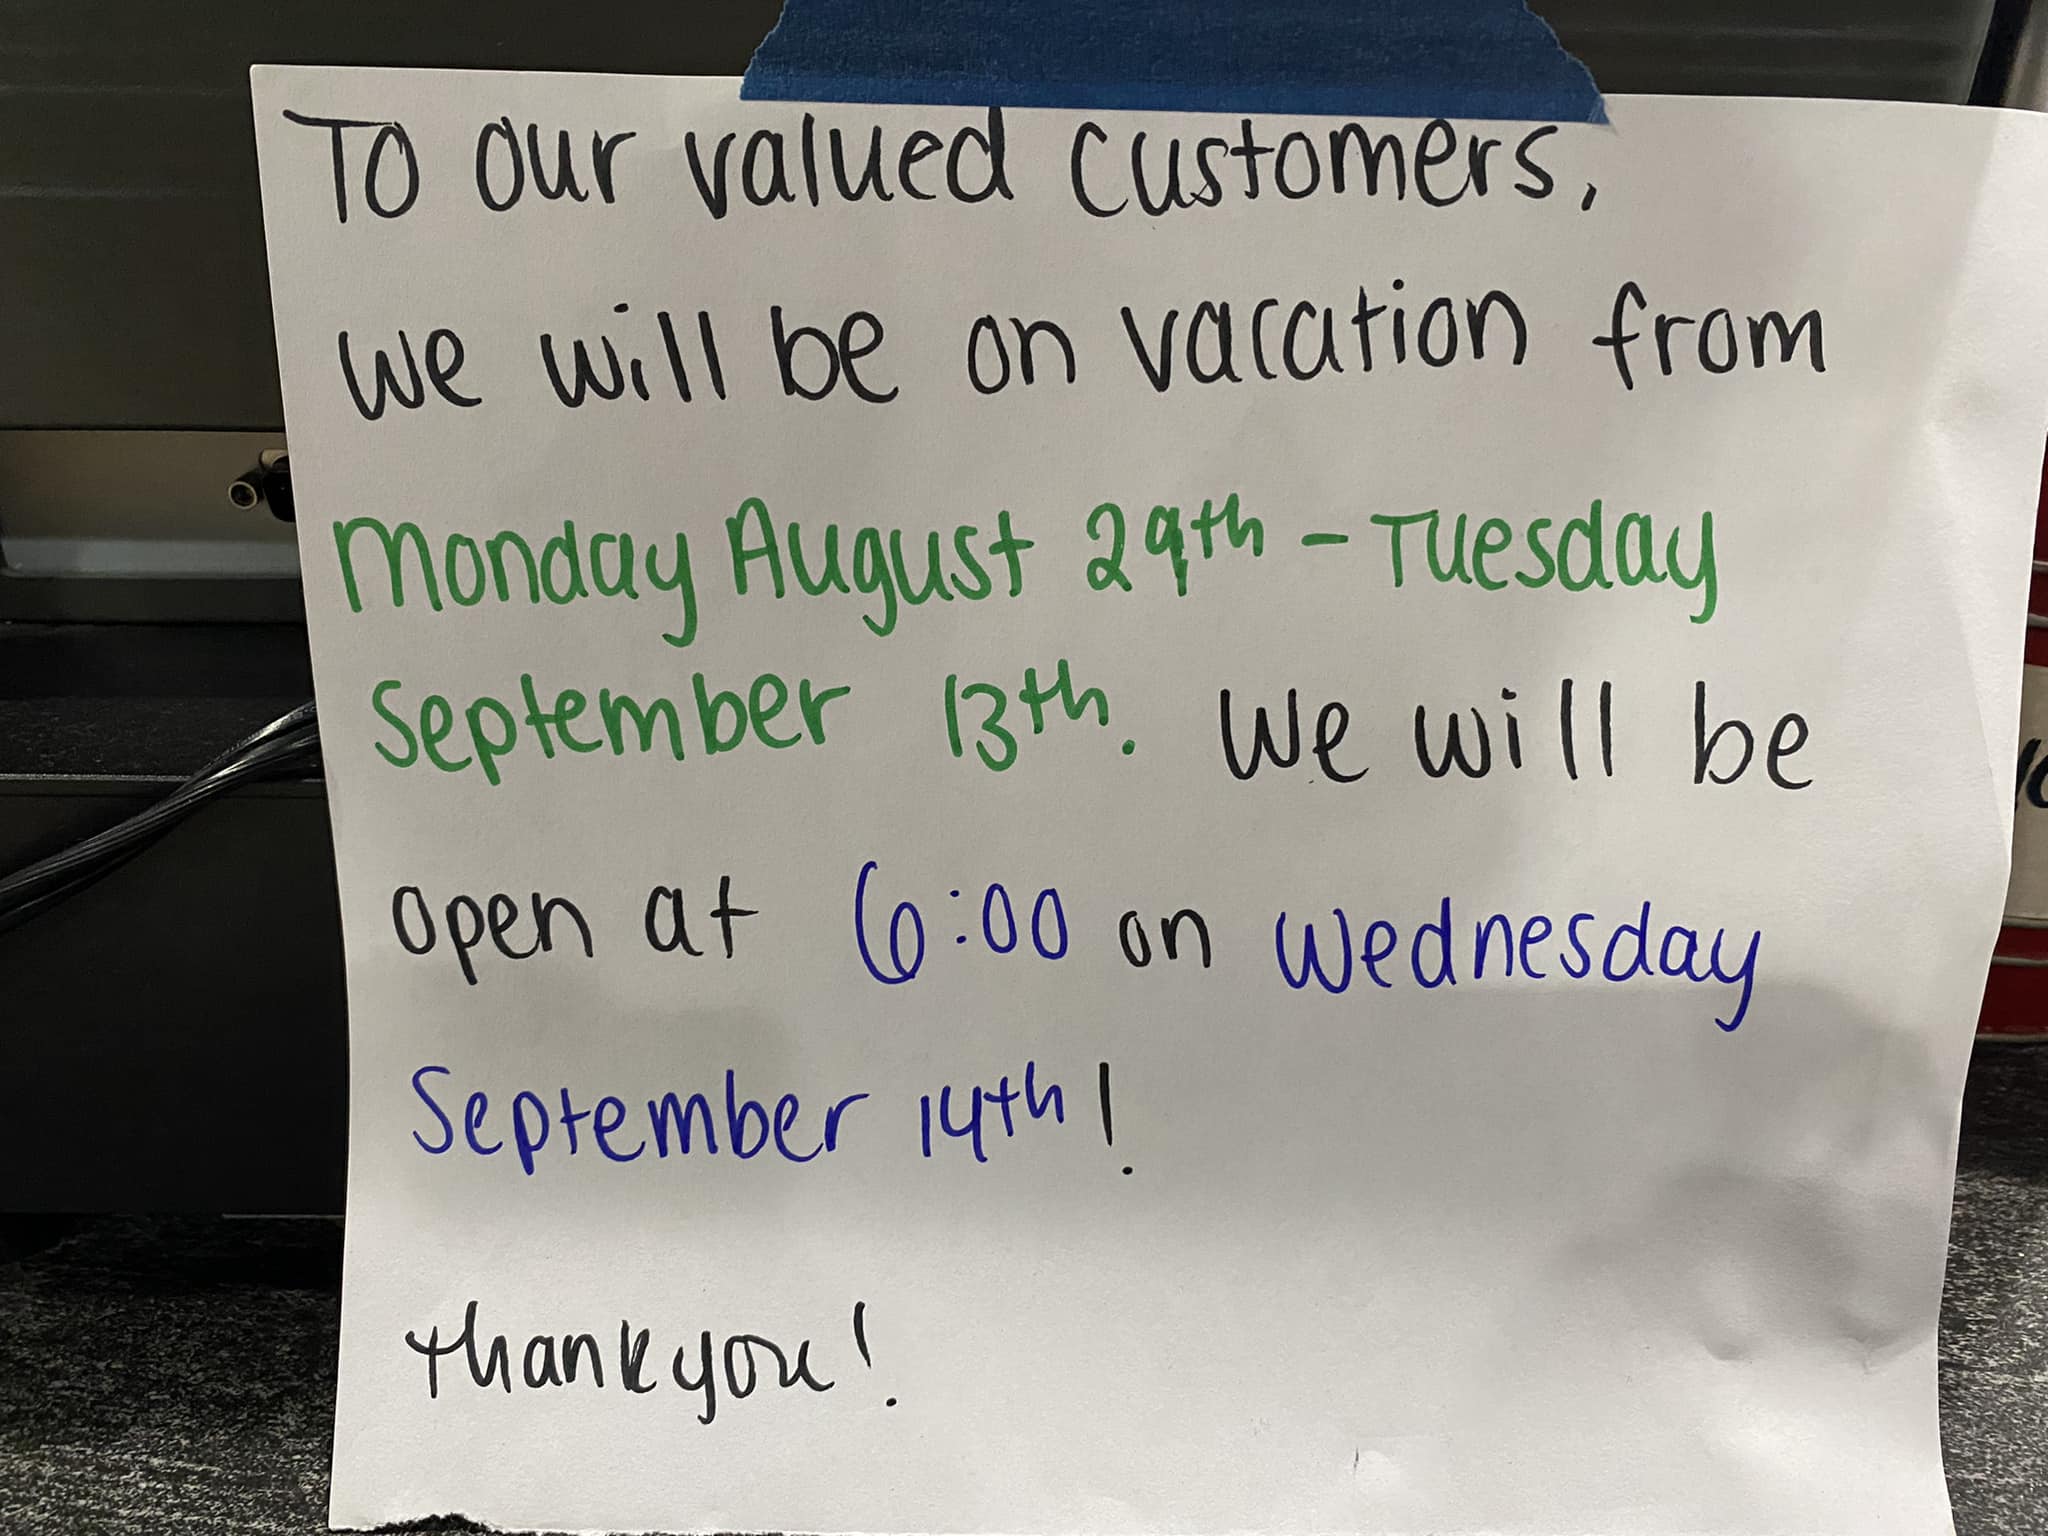 To our valued customers,
we will be on vacation from
Monday August 29th - Tuesday
September 13th. We will be
open at 6:00 on Wednesday
September 14th!
thankyou!